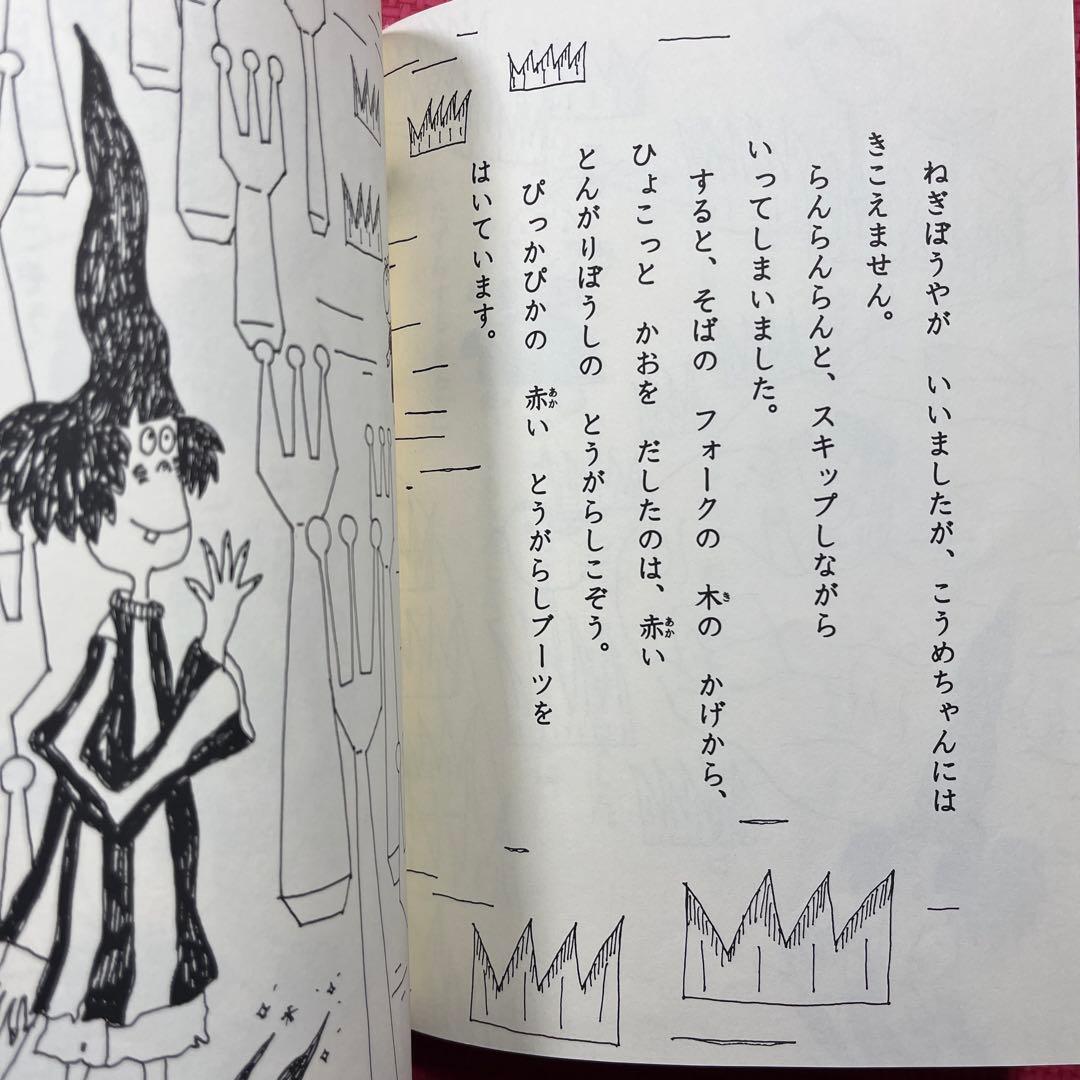 ねぎぼうやが　いいましたが、こうめちゃんには
きこえません。
らんらんらんと、スキップしながら
いってしまいました。
すると、そばの　フォークの　木の　かげから、
ひょこっと　かおを　だしたのは、赤い
とんがりぼうしの　とうがらしこぞう。
ぴっかぴかの　赤い　とうがらしブーツを
はいています。